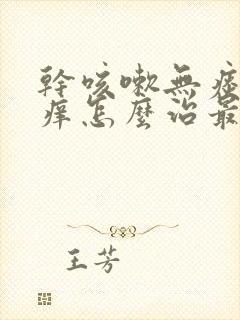 幹咳嗽無痰
痒怎麼治最
王芳